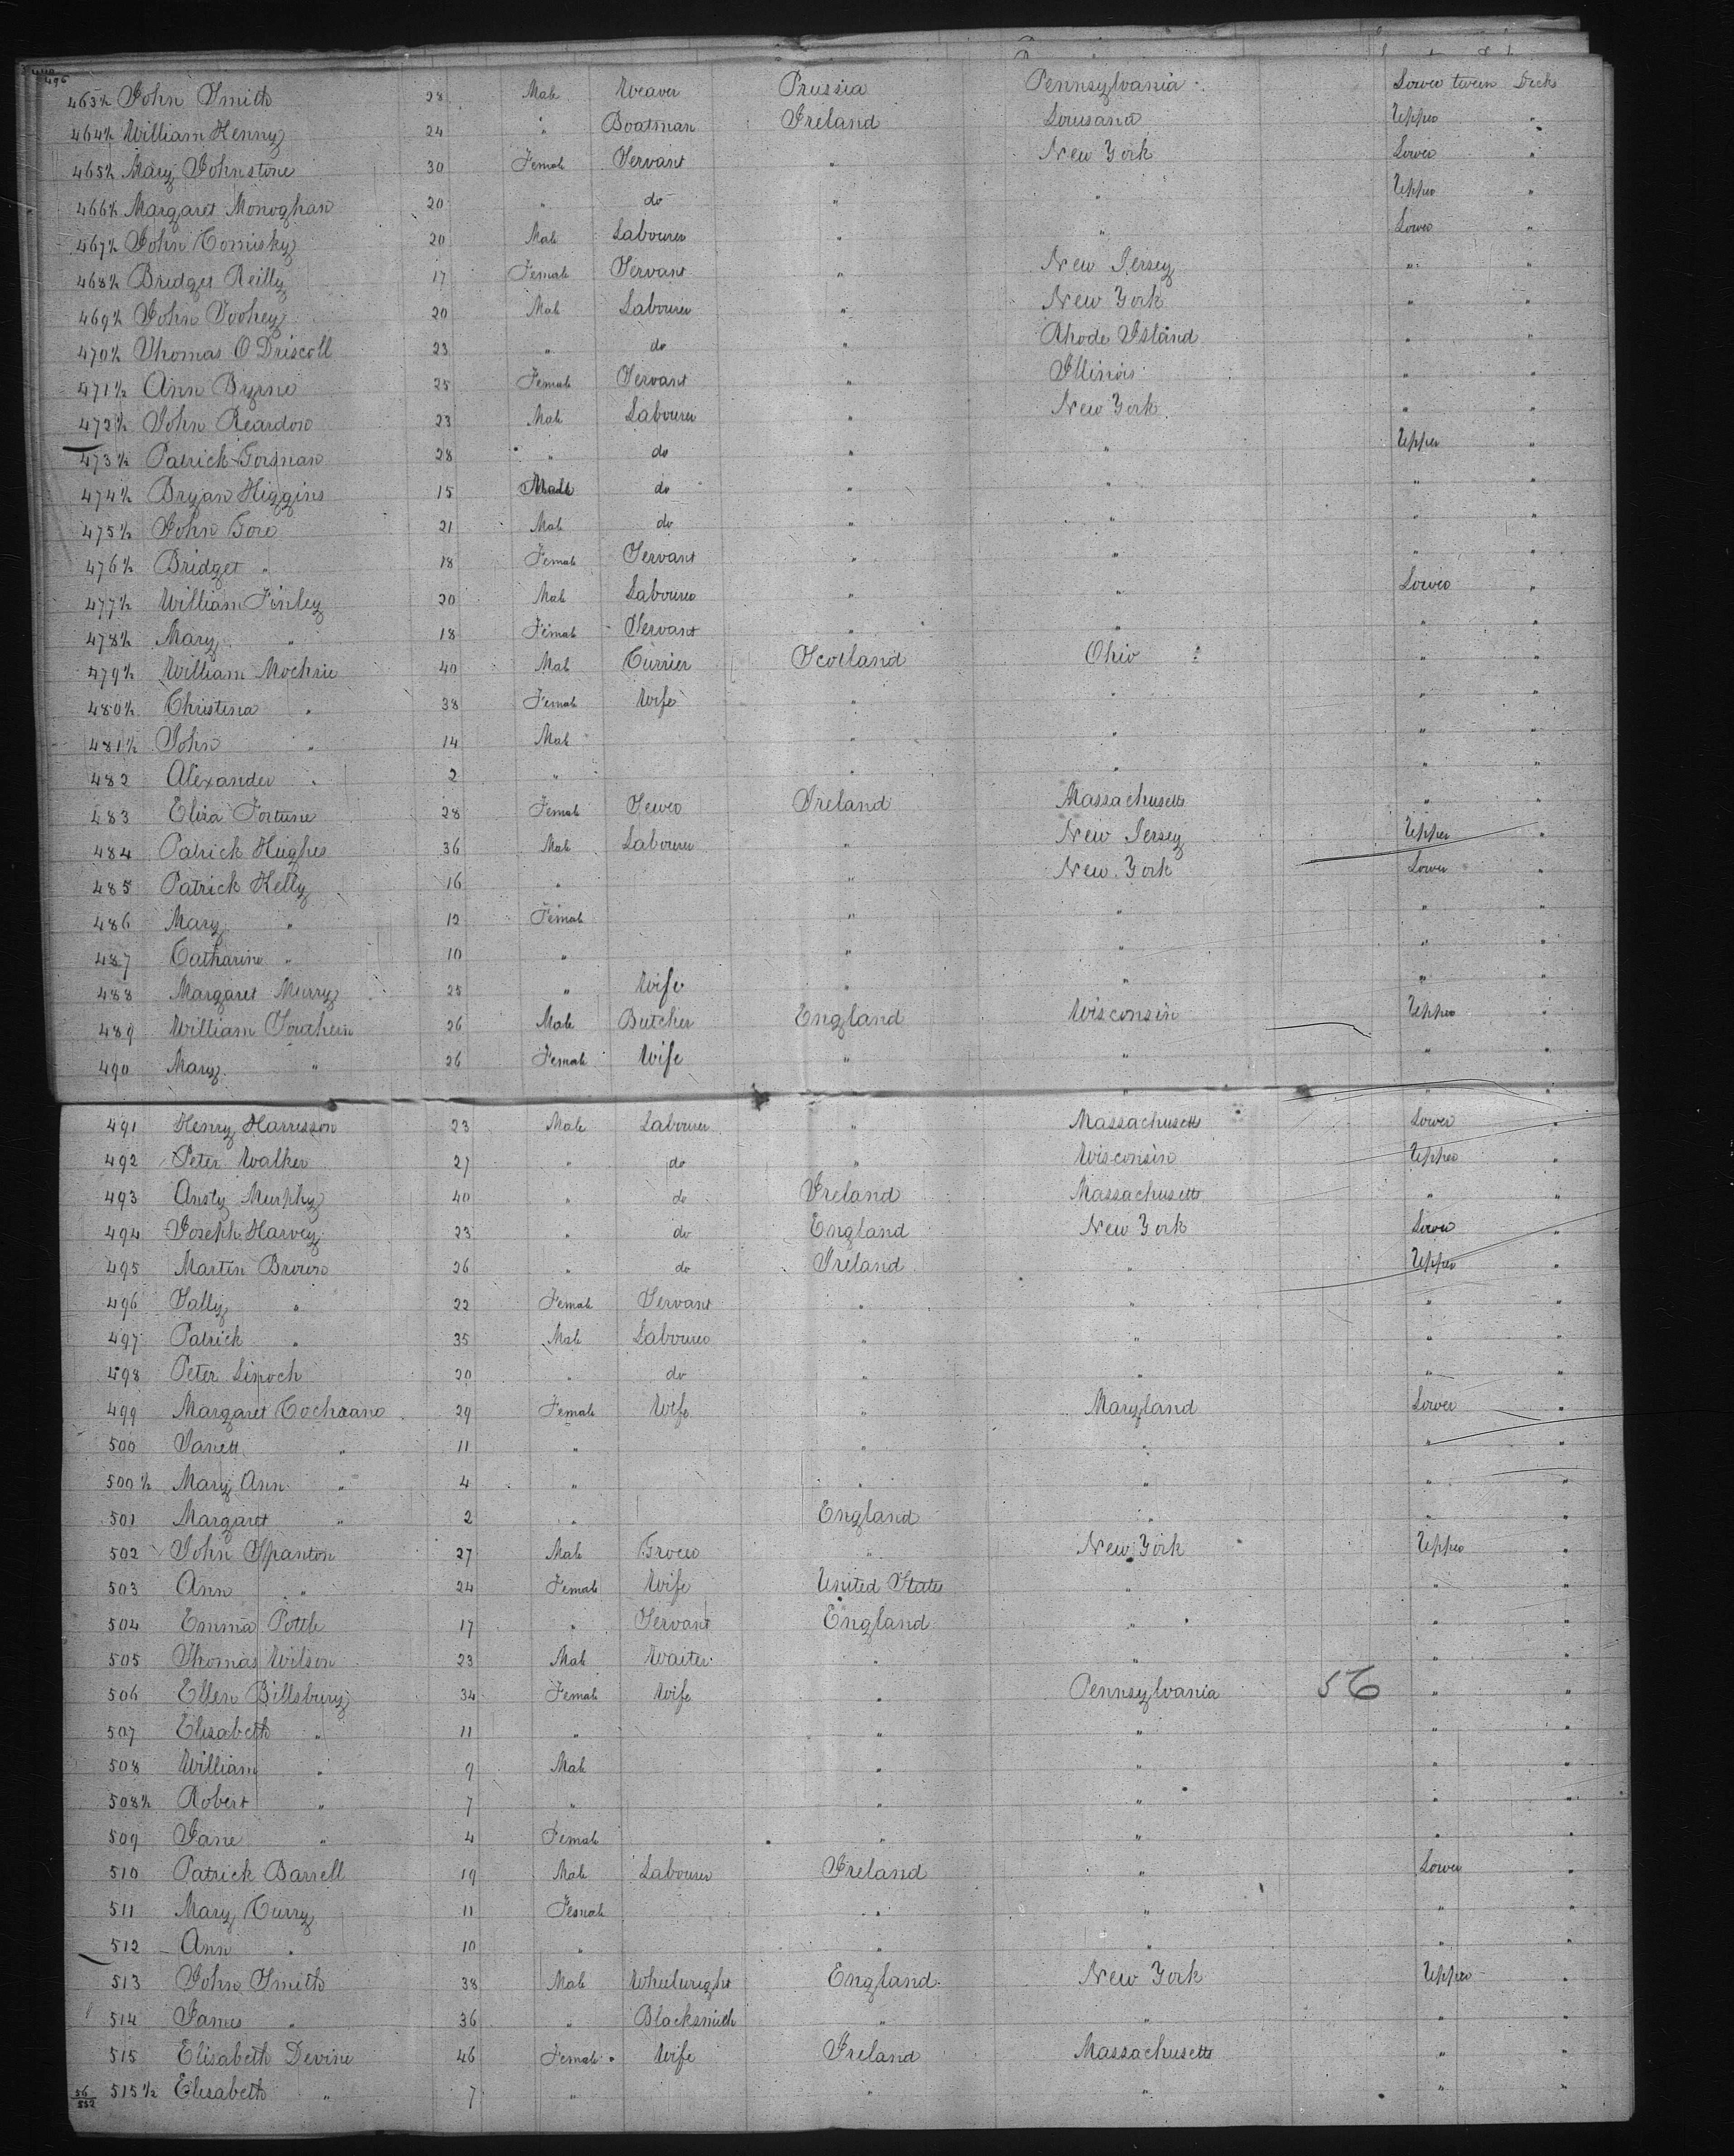 496
463½ John Smith 28 Male Weaver Prussia Pennsylvania Lower tween Decks
464½ William Henny 24 " Boatman Ireland Lousana Upper "
465½ Mary Johnstone 30 Female Servant " New York Lower "
466½ Margaret Monoghan 20 " do " " Upper "
467½ John Comisky 20 Male Labourer " " Lower "
468½ Bridget Reilly 17 Female Servant " New Jersey " "
469½ John Toohey 20 Male Labourer " New York " "
470½ Thomas O Driscoll 23 " do " Rhode Island " "
471½ Ann Byrne 25 Female Servant " Illinois " "
472½ John Reardon 23 Male Labourer " New York " "
473½ Patrick Gorman 28 " do " " Upper "
474½ Bryan Higgins 15 Male do " " " "
475½ John Gore 21 Male do " " " "
476½ Bridget " 18 Female Servant " " " "
477½ William Finley 20 Male Labourer " " Lower "
478½ Mary " 18 Female Servant " " " "
479½ William Mochrie 40 Male Currier Scotland Ohio " "
480½ Christina " 38 Female Wife " " " "
481½ John " 14 Male " " " "
482 Alexander " 2 " " " " "
483 Eliza Fortune 28 Female Sewer Ireland Massachusetts " "
484 Patrick Hughes 36 Male Labourer " New Jersey Upper "
485 Patrick Kelly 16 " " New York Lower "
486 Mary " 12 Female " " " "
487 Catharine " 10 " " " " "
488 Margaret Murry 25 " Wife " " " "
489 William Southern 26 Male Butcher England Wisconsin Upper "
490 Mary " 26 Female Wife " " " "
491 Henry Harrisson 23 Male Labourer " Massachusetts Lower "
492 Peter Walker 27 " do " Wisconsin Upper "
493 Ansty Murphy 40 " do Ireland Massachusetts " "
494 Joseph Harvey 23 " do England New York Lower "
495 Martin Brown 26 " do Ireland " Upper "
496 Sally " 22 Female Servant " " " "
497 Patrick " 35 Male Labourer " " " "
498 Peter Linoch 20 " do " " " "
499 Margaret Cochrane 29 Female Wife " Maryland Lower "
500 Janett " 11 " " " " "
500½ Mary Ann " 4 " " " " "
501 Margaret " 2 " England " " "
502 John Spanton 27 Male Grocer " New York Upper "
503 Ann " 24 Female Wife United States " " "
504 Emma Pottle 17 " Servant England " " "
505 Thomas Wilson 23 Male Waiter " " " "
506 Ellen Billsbury 34 Female Wife " Pennsylvania 56 " "
507 Elisabeth " 11 " " " " "
508 William " 9 Male " " " "
508½ Robert " 7 " " " " "
509 Jane " 4 Female " " " "
510 Patrick Barrell 19 Male Labourer Ireland " Lower "
511 Mary Curry 11 Female " " " "
512 Ann " 10 " " " " "
513 John Smith 38 Male Wheelwright England New York Upper "
514 James " 36 " Blacksmith " " " "
515 Elisabeth Devine 46 Female Wife Ireland Massachusetts " "
56/552 515½ Elisabeth " 7 " " " " "